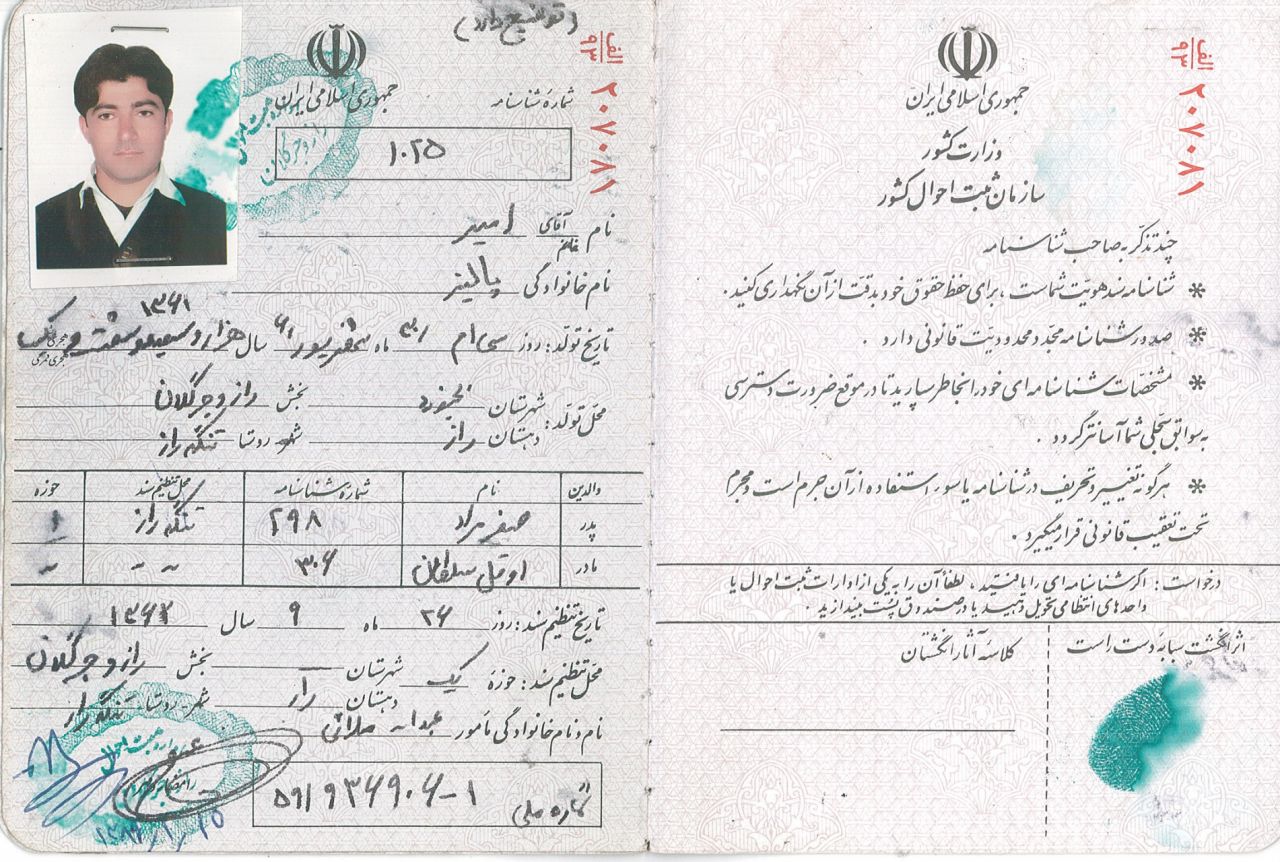 (توضیح دارد)
جمهوری اسلامی ایران
شمارهٔ شناسنامه
۱۰۲۵
الف
۹۳
۲۰۷۰۸۱
نام آقای خانم امیر
نام خانوادگی پالیز
۱۳۶۱
تاریخ تولد: روز سی ام ۳۰ ماه شهریور ۶ سال هزار و سیصد و شصت و یک هجری شمسی هجری قمری
محل تولد: شهرستان بجنورد بخش راز و جرگلان
دهستان راز شهر روستا تنگه راز
والدین نام شمارهٔ شناسنامه محل تنظیم سند حوزه
پدر صفر مراد ۲۹۸ تنگه راز ۱
مادر اوقل سلطان ۳۰۶ " "
تاریخ تنظیم سند: روز ۲۶ ماه ۹ سال ۱۳۶۲
محل تنظیم سند: حوزهٔ یک شهرستان — بخش راز و جرگلان
دهستان راز شهر روستا تنگه راز
نام و نام خانوادگی مأمور عبداله
شماره ملی ۵۹۱۹۳۶۹۰۶-۱
جمهوری اسلامی ایران
وزارت کشور
سازمان ثبت احوال کشور
الف
۹۳
۲۰۷۰۸۱
چند تذکر به صاحب شناسنامه
* شناسنامه سند هویت شماست، برای حفظ حقوق خود بدقت از آن نگهداری کنید.
* صدور شناسنامه مجدد محدودیت قانونی دارد.
* مشخصات شناسنامه ای خود را بخاطر بسپارید تا در موقع ضرورت دسترسی
به سوابق سجلی شما آسانتر گردد.
* هرگونه تغییر و تحریف در شناسنامه یا سوء استفاده از آن جرم است و مجرم
تحت تعقیب قانونی قرار میگیرد.
درخواست: اگر شناسنامه ای را یافتید، لطفاً آن را به یکی از ادارات ثبت احوال یا
واحدهای انتظامی تحویل دهید یا در صندوق پست بیندازید.
اثر انگشت سبابهٔ دست راست
کلاسهٔ آثار انگشتان